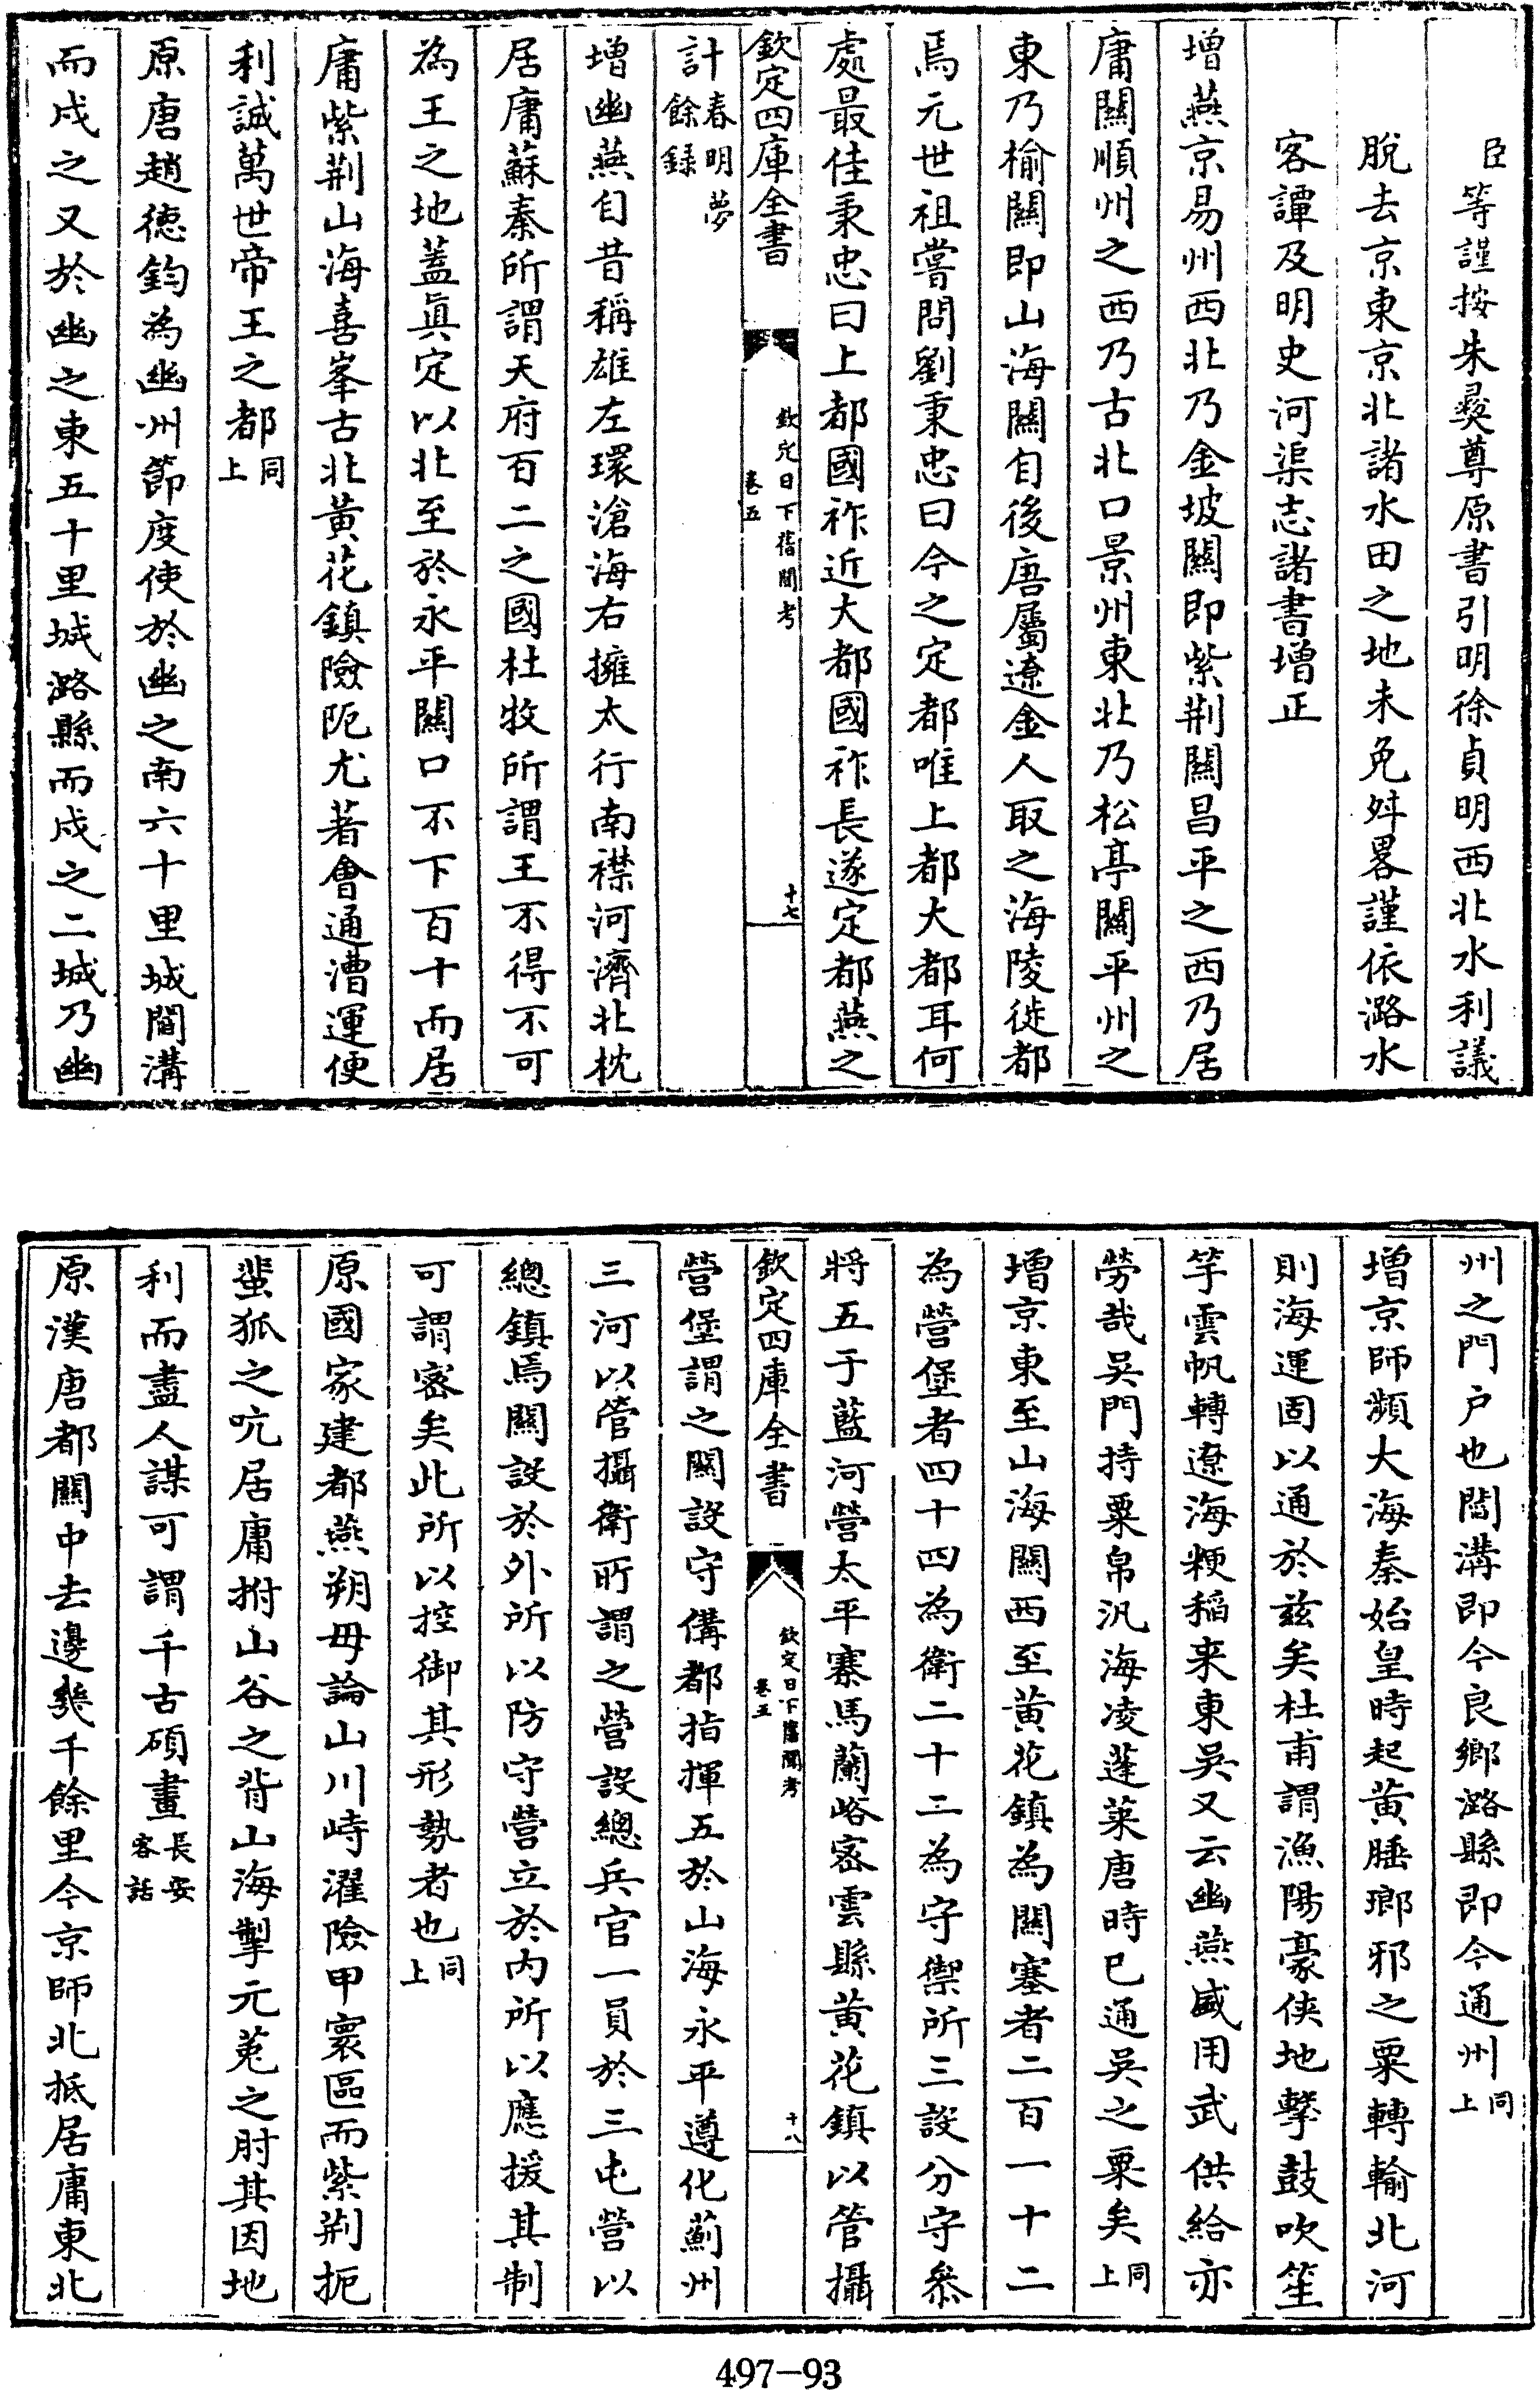 臣等謹按朱彞尊原書引明徐貞明西北水利議
脫去京東京北諸水田之地未免舛畧謹依潞水
客譚及明史河渠志諸書增正
增燕京易州西北乃金坡關即紫荆關昌平之西乃居
庸關順州之西乃古北口景州東北乃松亭關平州之
東乃榆關即山海關自後唐屬遼金人取之海陵徙都
焉元世祖嘗問劉秉忠曰今之定都唯上都大都耳何
處最佳秉忠曰上都國祚近大都國祚長遂定都燕之
欽定四庫全書
欽定日下舊聞考
卷五
十七
計春明夢餘録
增幽燕自昔稱雄左環滄海右擁太行南襟河濟北枕
居庸蘇秦所謂天府百二之國杜牧所謂王不得不可
為王之地蓋眞定以北至於永平關口不下百十而居
庸紫荆山海喜峯古北黃花鎮險阨尤著會通漕運便
利誠萬世帝王之都同上
原唐趙德鈞為幽州節度使於幽之南六十里城閻溝
而戍之又於幽之東五十里城潞縣而戍之二城乃幽
州之門户也閻溝即今良鄉潞縣即今通州同上
增京師瀕大海秦始皇時起黃腄瑯邪之粟轉輸北河
則海運固以通於兹矣杜甫謂漁陽豪俠地擊鼓吹笙
竽雲帆轉遼海粳稻来東吳又云幽燕盛用武供給亦
勞哉吳門持粟帛汎海凌蓬萊唐時已通吳之粟矣同上
增京東至山海關西至黃花鎮為關塞者二百一十二
為營堡者四十四為衛二十二為守禦所三設分守叅
將五于藍河營太平寨馬蘭峪宻雲縣黃花鎮以管攝
欽定四庫全書
欽定日下舊聞考
卷五
十八
營堡謂之關設守備都指揮五於山海永平遵化薊州
三河以管攝衛所謂之營設總兵官一員於三屯營以
總鎮焉關設於外所以防守營立於内所以應援其制
可謂宻矣此所以控御其形勢者也同上
原國家建都燕朔毋論山川峙濯險甲寰區而紫荆扼
蜚狐之吭居庸拊山谷之背山海掣元菟之肘其因地
利而盡人謀可謂千古碩畫長安客話
原漢唐都關中去邊幾千餘里今京師北抵居庸東北
497-93